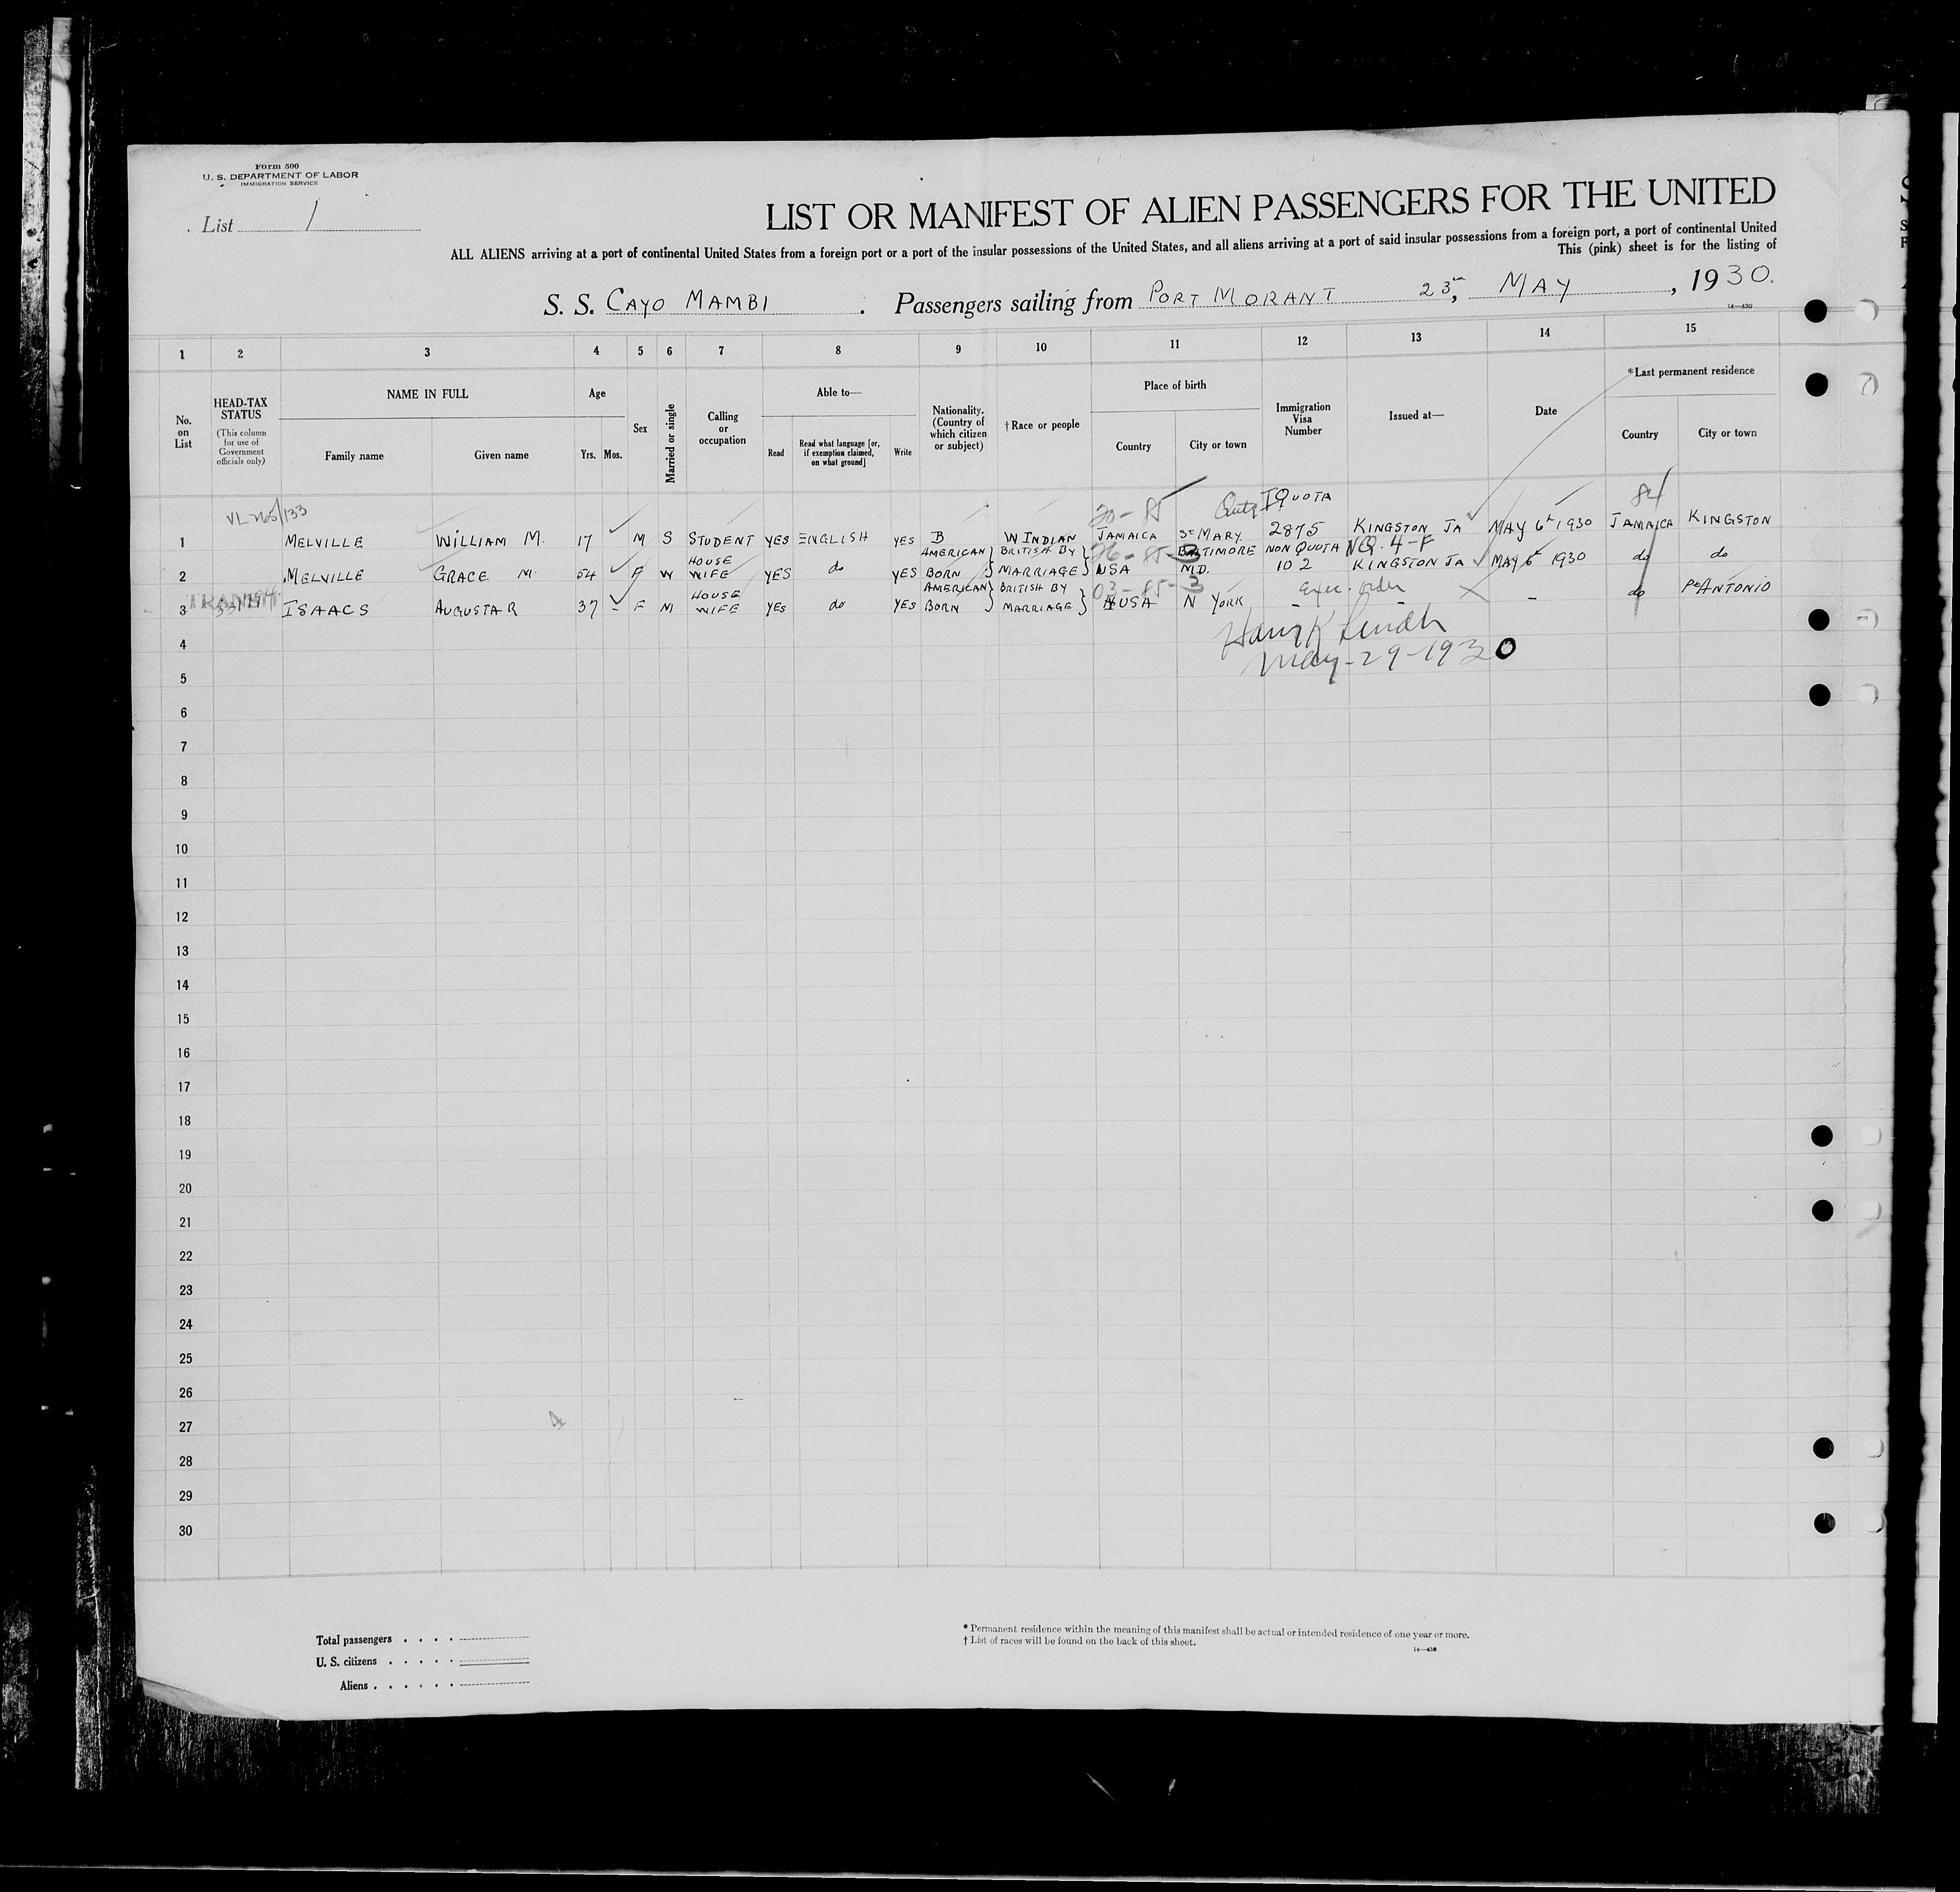 Form 500
U. S. DEPARTMENT OF LABOR
IMMIGRATION SERVICE
List 1
LIST OR MANIFEST OF ALIEN PASSENGERS FOR THE UNITED
ALL ALIENS arriving at a port of continental United States from a foreign port or a port of the insular possessions of the United States, and all aliens arriving at a port of said insular possessions from a foreign port, a port of continental United
This (pink) sheet is for the listing of
S. S. CAYO MAMBI . Passengers sailing from PORT MORANT 23rd, MAY , 1930.
14—430
1 2 3 4 5 6 7 8 9 10 11 12 13 14 15
No. on List
HEAD-TAX STATUS
(This column for use of Government officials only)
NAME IN FULL
Family name
Given name
Age
Yrs. Mos.
Sex
Married or single
Calling or occupation
Able to—
Read
Read what language [or, if exemption claimed, on what ground]
Write
Nationality. (Country of which citizen or subject)
†Race or people
Place of birth
Country
City or town
Immigration Visa Number
Issued at—
Date
*Last permanent residence
Country
City or town
QUOTA
1 MELVILLE WILLIAM M. 17 M S STUDENT YES ENGLISH YES B W INDIAN JAMAICA St MARY 2875 KINGSTON JA MAY 6th 1930 JAMAICA KINGSTON
2 MELVILLE GRACE M. 54 F W HOUSE WIFE YES do YES AMERICAN BORN } BRITISH BY MARRIAGE } USA BALTIMORE MD. NON QUOTA 102 NQ. 4-F KINGSTON JA MAY 6th 1930 do do
3 ISAACS AUGUSTA R 37 - F M HOUSE WIFE YES do YES AMERICAN BORN } BRITISH BY MARRIAGE } USA N YORK - Exec. order - - do Pt ANTONIO
03-85-3
May-29-1930
4
5
6
7
8
9
10
11
12
13
14
15
16
17
18
19
20
21
22
23
24
25
26
27
28
29
30
4
Total passengers . . . .
U. S. citizens . . . . .
Aliens . . . . . .
* Permanent residence within the meaning of this manifest shall be actual or intended residence of one year or more.
† List of races will be found on the back of this sheet.
14—430